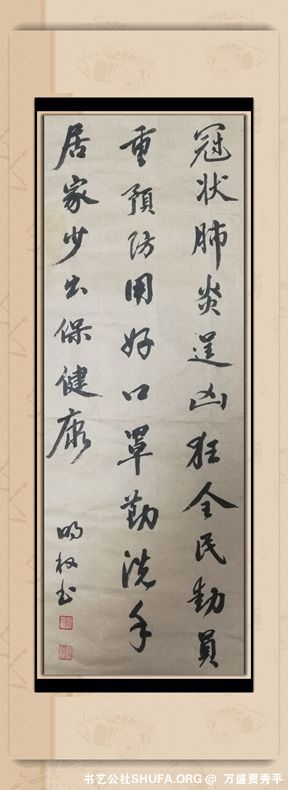 冠状肺炎逞凶狂全民動員
重預防用好口罩勤洗手
居家少出保健康
明权书
书艺公社SHUFA.ORG @ 万盛贾秀平